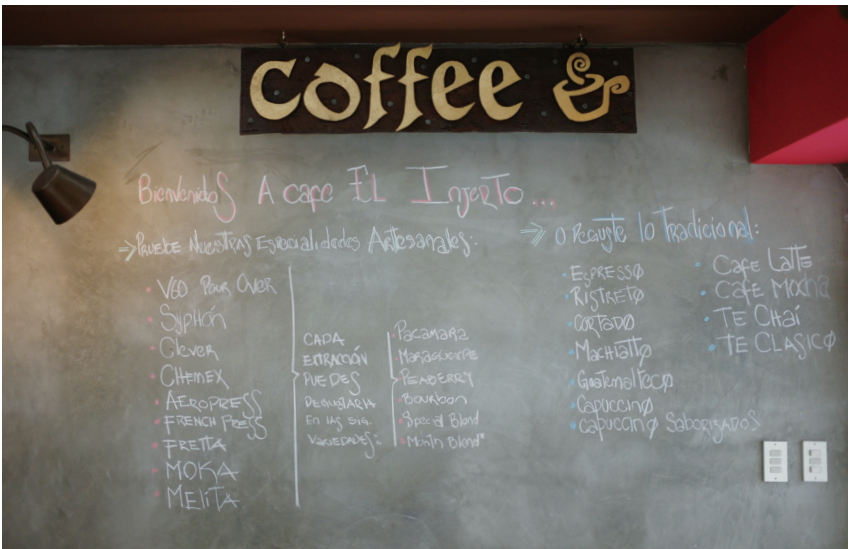 coffee
Bienvenidos A cafe EL InjerTo...
→ Pruebe Nuestras Especialidades Artesanales:
V60 Pour Over
Syphón
Clever
CHEMEX
AEROPRESS
FRENCH PRESS
FRETTA
MOKA
MELITA
CADA
EXTRACCIÓN
PUEDES
DEGUSTARLA
En las sig.
VARIEDADES:
Pacamara
Maragogype
PEABERRY
Bourbon
Special Blend
Month Blend"
→ O Deguste lo Tradicional:
Espresso
RISTRETO
CORTADO
Machiatto
Guatemalteco
Capuccino
Capuccino Saborizados
Cafe Latte
CAFE Mocha
TE Chai
TE CLASICO